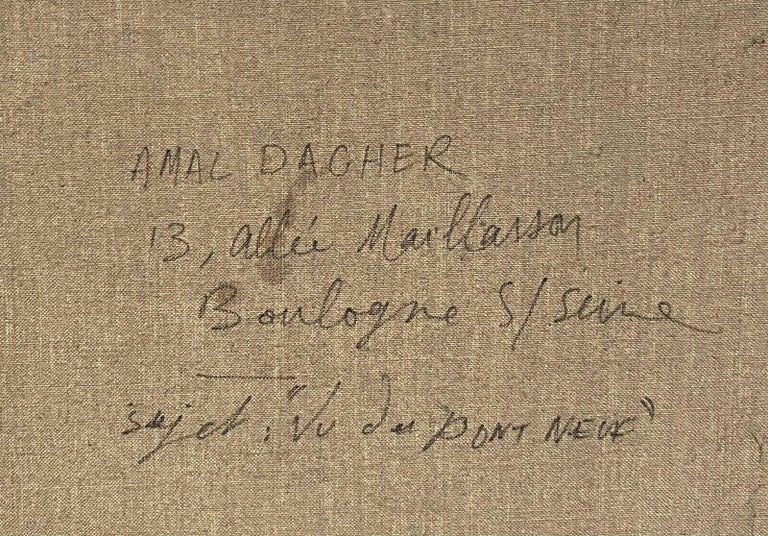 AMAL DAGHER
13, allée Maillasson
Boulogne S/Seine
sujet : "Vu du PONT NEUF"